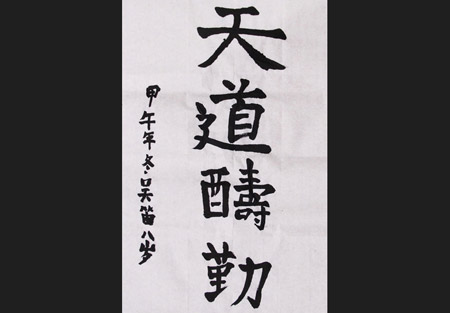 天道酬勤
甲午年冬吴笛八岁